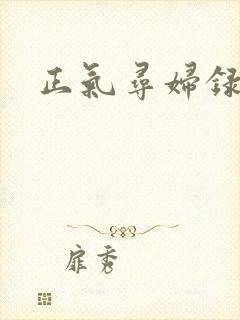 正氣尋婦録
扉秀